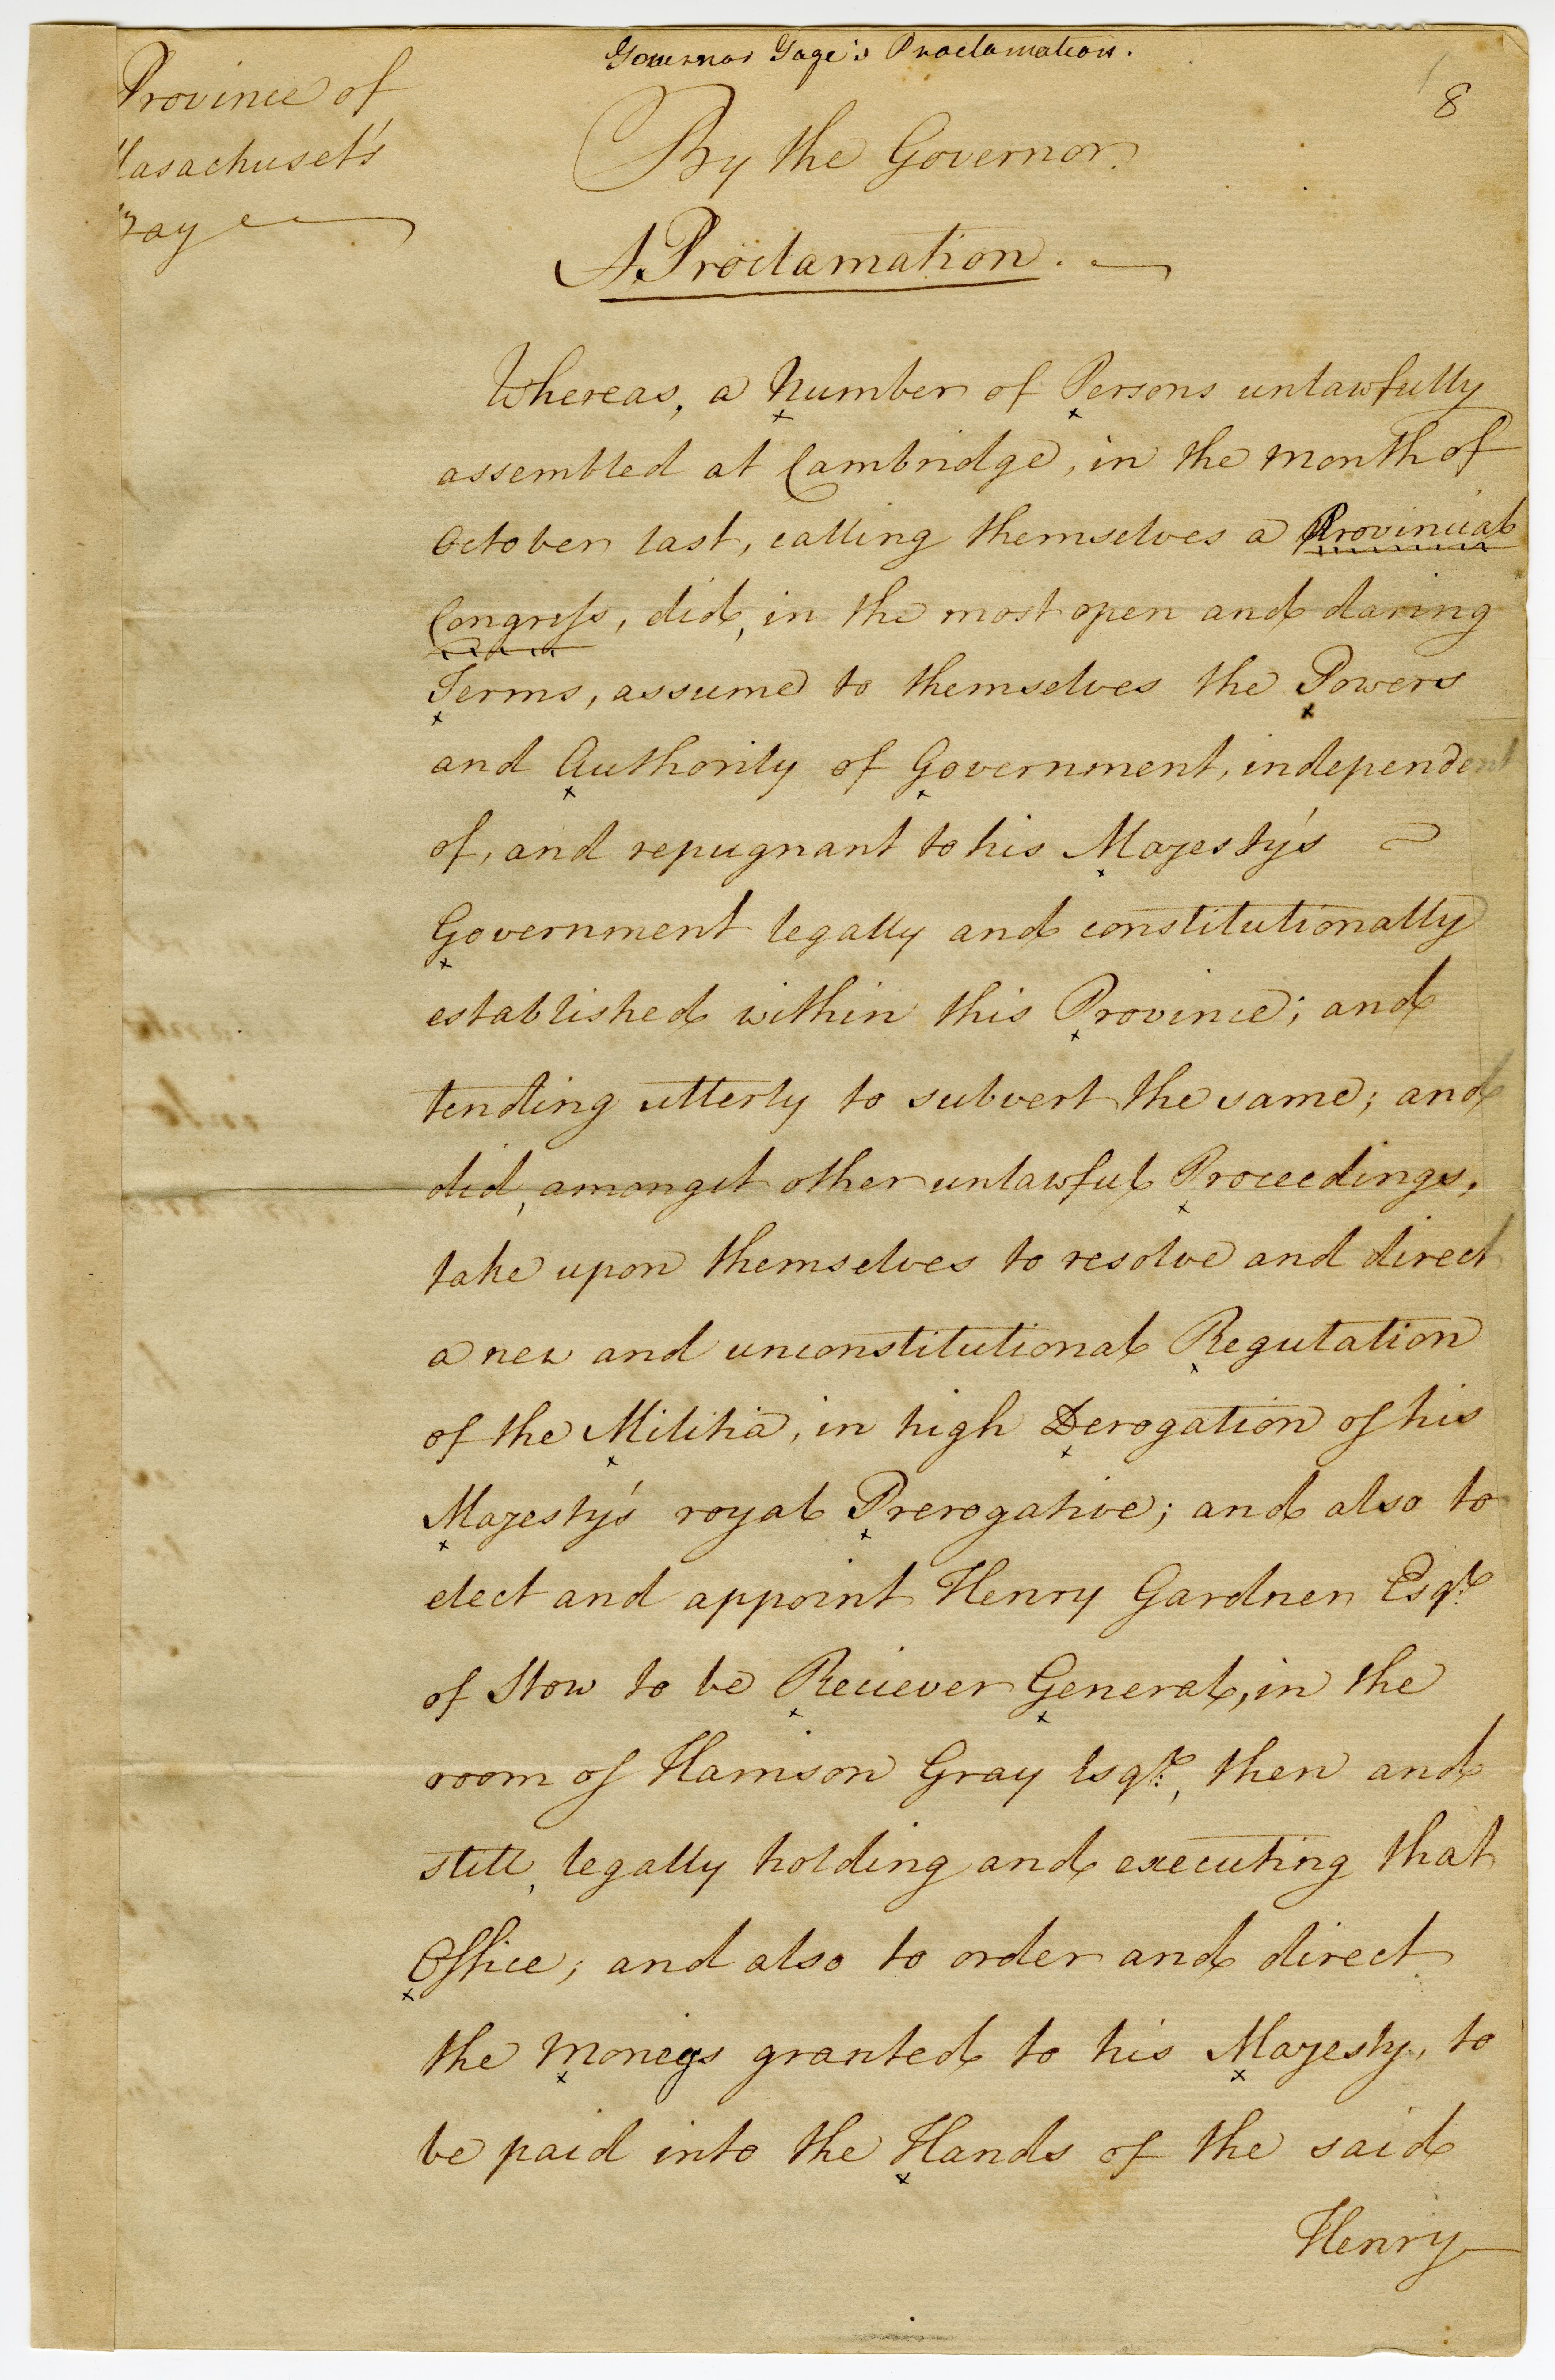 Governor Gage's Proclamation.
8
Province of
Masachuset's
Bay
By the Governor.
A Proclamation.
Whereas, a Number of Persons unlawfully
assembled at Cambridge, in the Month of
October last, calling themselves a Provincial
Congress, did, in the most open and daring
Terms, assume to themselves the Powers
and Authority of Government, independent
of, and repugnant to his Majesty's
Government legally and constitutionally
established within this Province; and
tending utterly to subvert the same; and
did, amongst other unlawful Proceedings,
take upon themselves to resolve and direct
a new and unconstitutional Regulation
of the Militia, in high Derogation of his
Majesty's royal Prerogative; and also to
elect and appoint Henry Gardner Esqr.
of Stow to be Reciever General, in the
room of Harrison Gray Esqr., then and
still, legally holding and executing that
Office; and also to order and direct
the Moneys granted to his Majesty, to
be paid into the Hands of the said
Henry